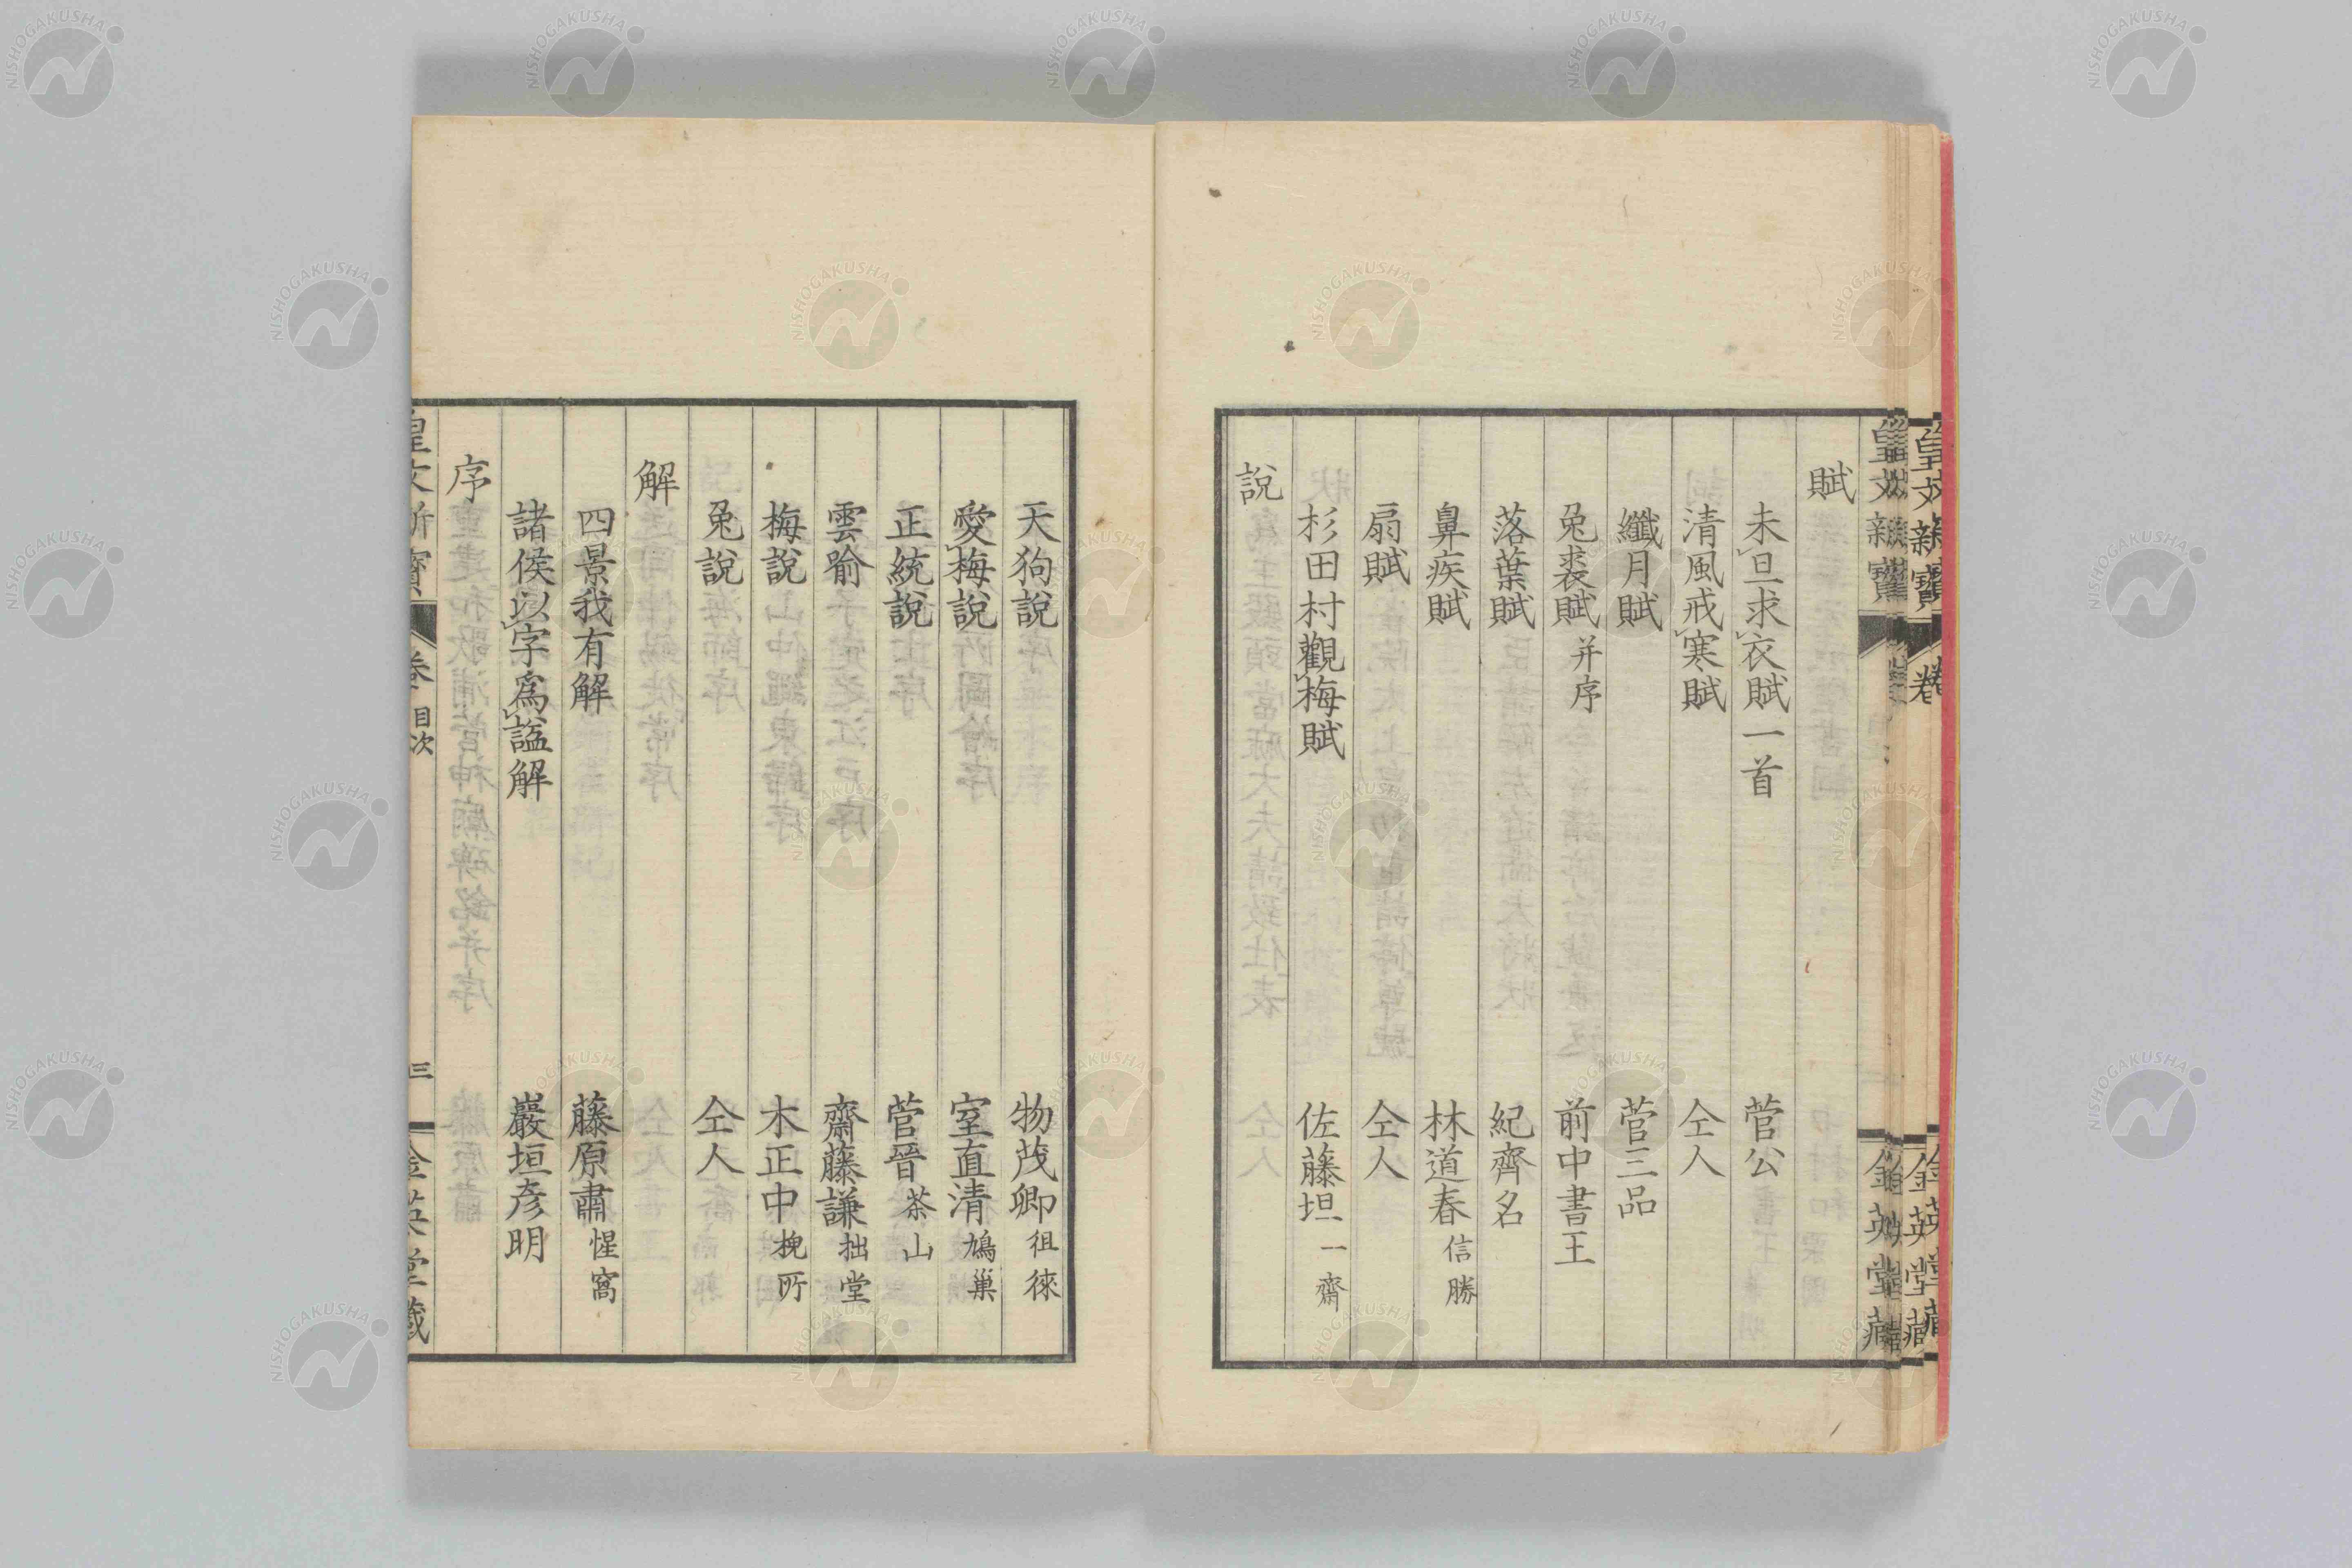 賦
未旦求衣賦一首 菅公
清風戒寒賦 仝人
纖月賦 菅三品
兔裘賦 并序 前中書王
落葉賦 紀齊名
鼻疾賦 林道春 信勝
扇賦 仝人
杉田村觀梅賦 佐藤坦 一齋
說
天狗說 物茂卿 徂徠
愛梅說 室直清 鳩巢
正統說 菅晉 茶山
雲喻 齋藤謙 拙堂
梅說 木正中 挽所
兔說 仝人
解
四景我有解 藤原肅 惺窩
諸侯以字為諡解 巖垣彥明
序
皇文新寶 卷 目次 三 金英堂藏
皇文新寶 卷 金英堂藏
NISHOGAKUSHA